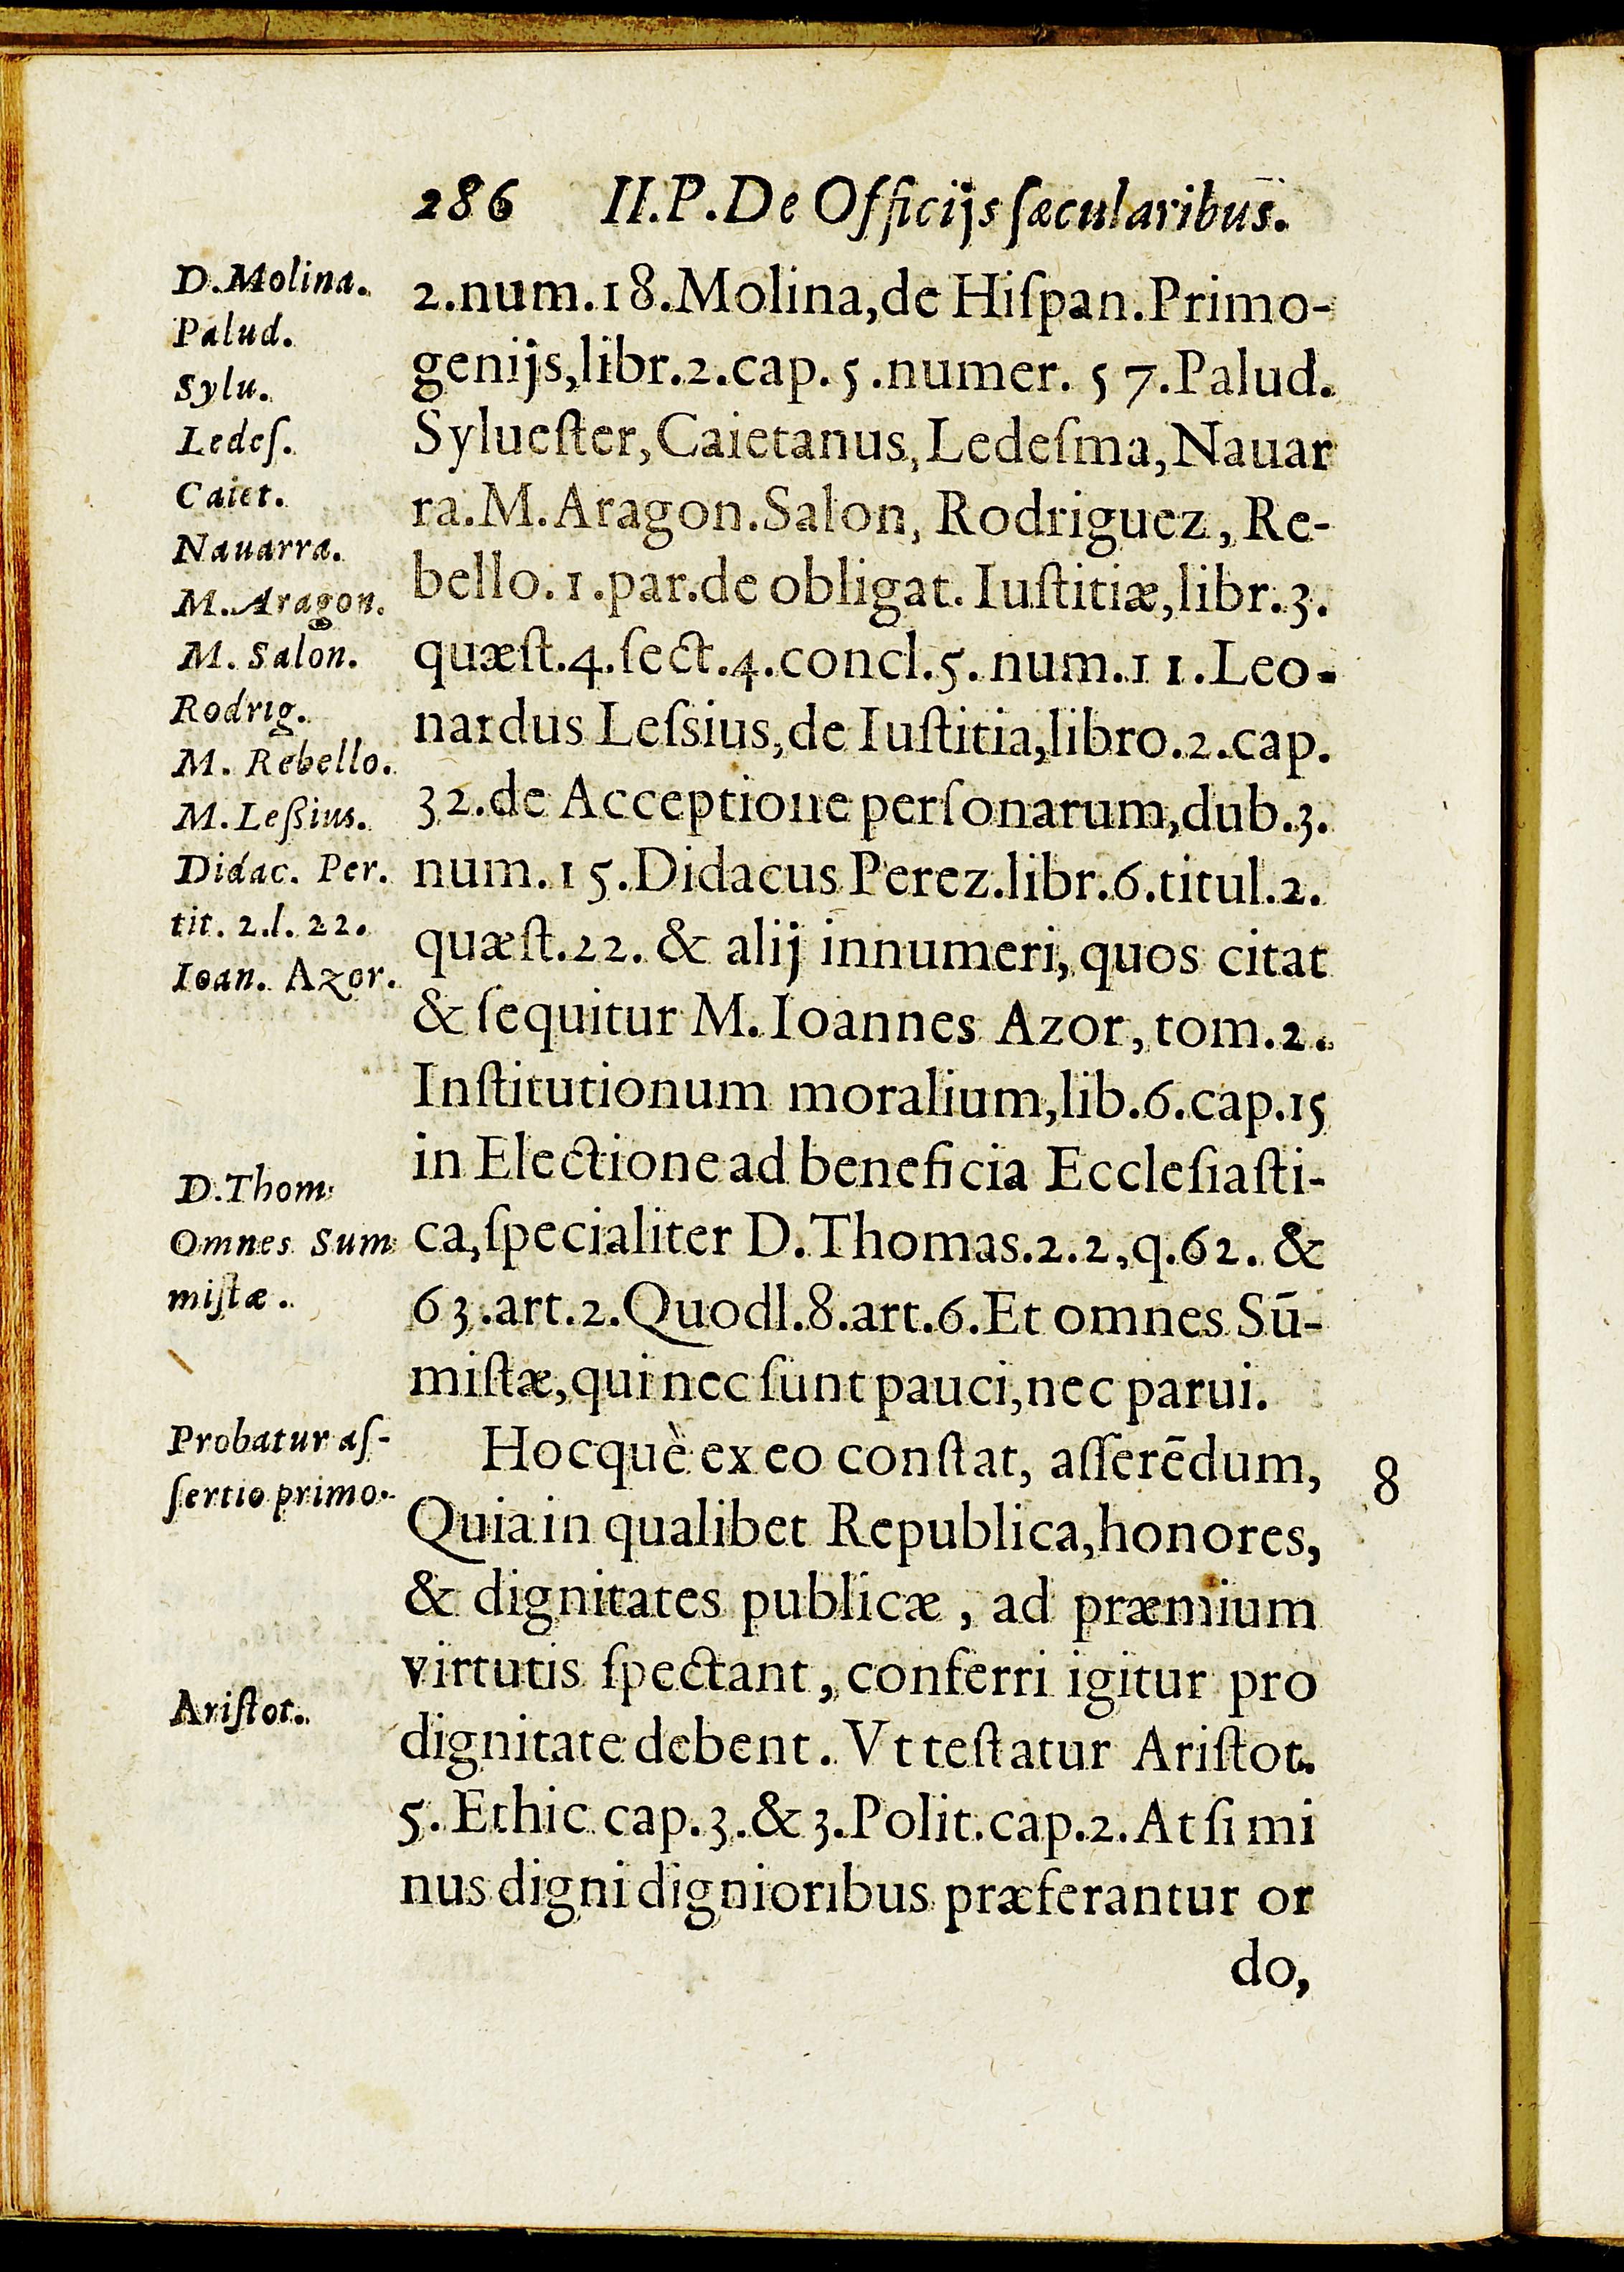 286 II.P.De Officijs ſæcularibus.
D.Molina.
Palud.
Sylu.
Ledeſ.
Caiet.
Nauarra.
M.Aragon.
M. Salon.
Rodrig.
M. Rebello.
M.Leßius.
Didac. Per.
tit. 2.l. 22.
Ioan. Azor.
D.Thom.
Omnes Sum
miſtæ.
Probatur aſ-
ſertio primo.
Ariſtot.
2.num.18.Molina,de Hiſpan.Primo-
genijs,libr.2.cap.5.numer. 57.Palud.
Sylueſter,Caietanus,Ledeſma,Nauar
ra.M.Aragon.Salon, Rodriguez, Re-
bello.1.par.de obligat. Iuſtitiæ,libr.3.
quæſt.4.ſect.4.concl.5.num.11.Leo-
nardus Leſsius,de Iuſtitia,libro.2.cap.
32.de Acceptione perſonarum,dub.3.
num.15.Didacus Perez.libr.6.titul.2.
quæſt.22. & alij innumeri, quos citat
& ſequitur M. Ioannes Azor, tom.2.
Inſtitutionum moralium,lib.6.cap.15
in Electione ad beneficia Eccleſiaſti-
ca,ſpecialiter D.Thomas.2.2,q.62. &
63.art.2.Quodl.8.art.6.Et omnes Sū-
miſtæ,qui nec ſunt pauci,nec parui.
Hocquè ex eo conſtat, aſſerēdum,
8
Quia in qualibet Republica,honores,
& dignitates publicæ, ad præmium
virtutis ſpectant, conferri igitur pro
dignitate debent. Vt teſtatur Ariſtot.
5.Ethic cap.3.& 3.Polit.cap.2.At ſi mi
nus digni dignioribus præferantur or
do,